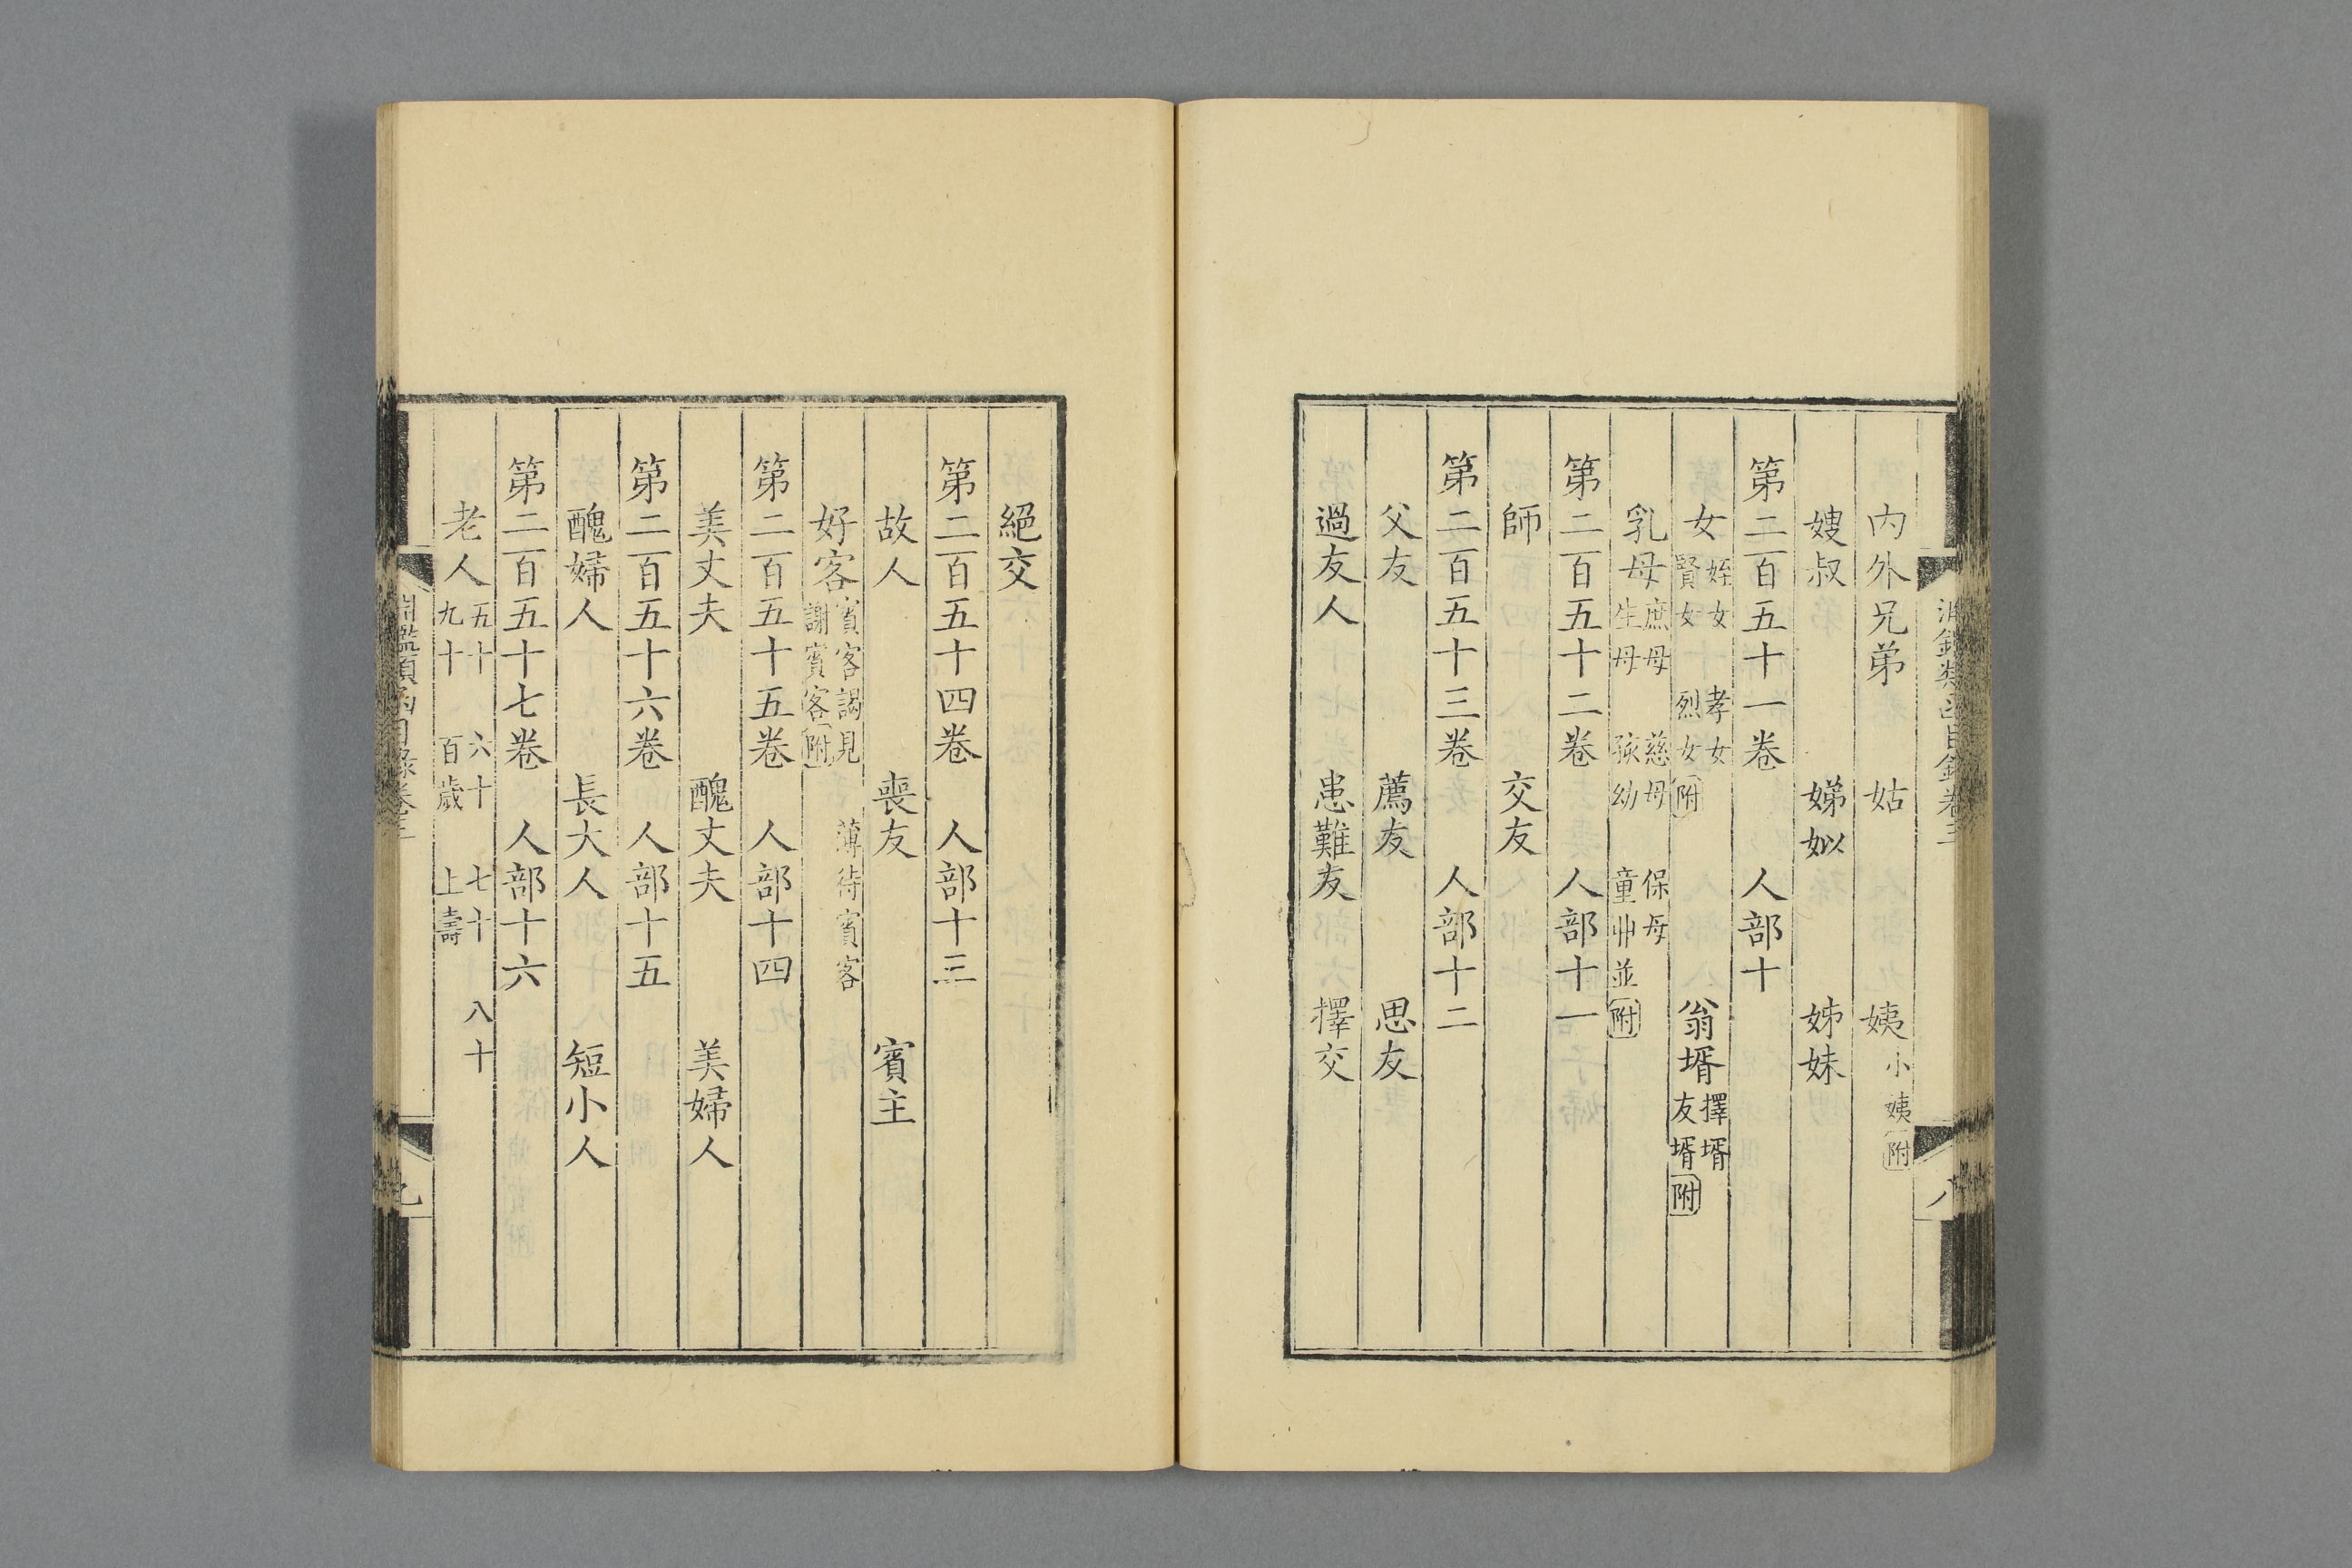 內外兄弟　姑　姨小姨附
嫂叔　娣姒　姊妹
第二百五十一卷　人部十
女姪女　孝女　賢女　烈女附　翁壻擇壻　友壻附
乳母庶母　慈母　保母　生母　孩幼　童丱並附
第二百五十二卷　人部十一
師　交友
第二百五十三卷　人部十二
父友　薦友　思友
過友人　患難友　擇交
絕交
第二百五十四卷　人部十三
故人　喪友　賓主
好客賓客謁見　薄待賓客　謝賓客附
第二百五十五卷　人部十四
美丈夫　醜丈夫　美婦人
第二百五十六卷　人部十五
醜婦人　長大人　短小人
第二百五十七卷　人部十六
老人五十　六十　七十　八十　九十　百歲　上壽